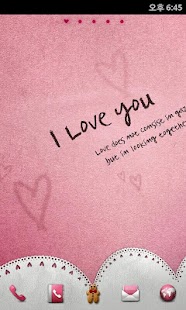 오후 6:45
I Love you
Love does not consise in gaz
but in looking togeth